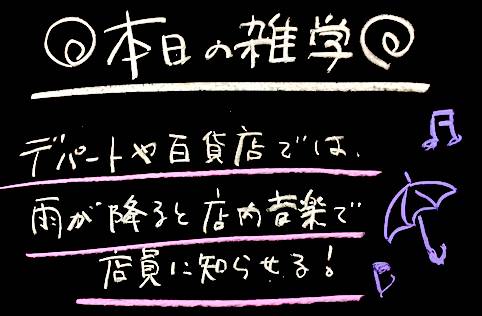 本日の雑学
デパートや百貨店では、
雨が降ると店内音楽で
店員に知らせる!